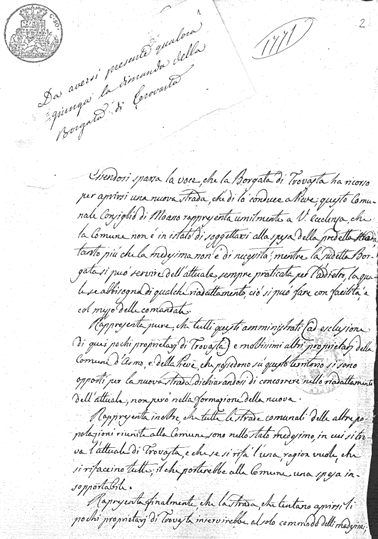 2
1771
Da aversi presente qualora
giunga la dimanda della
Borgata di Trovasta
Essendosi sparsa la voce, che la Borgata di Trovasta ha ricorso
per aprirsi una nuova strada, che di là conduce a Pieve, questo Comu-
nale Consiglio di Moano rappresenta umilmente a V. Eccellenza, che
la Comune non è in istato di soggettarsi alla spesa della predetta strada
tanto più che la medesima non è di necessità, mentre la sudetta Bor-
gata si può servire dell'attuale, sempre praticata per l'addietro, la qua-
le se abbisogna di qualche riadattamento, ciò si può fare con facilità, e
col mezzo delle comandate.
Rappresenta pure, che tutti questi amministrati (ad esclusione
di quei pochi proprietarj di Trovasta) e moltissimi altri proprietarj della
Comune d'Armo, e della Pieve, che possedono su questo territorio si sono
opposti per la nuova strada dichiarandosi di concorrere nello riadattamento
dell'attuale, non però nella formazione della nuova.
Rappresenta inoltre che tutte le strade comunali delle altre po-
polazioni riunite alla Comune sono nello stato medesimo in cui si tro-
va l'attuale di Trovasta, e che se si rifà l'una ragion vuole che
si rifaccino tutte, il che porterebbe alla Comune una spesa in-
sopportabile.
Rappresenta finalmente che la strada, che tentano aprirsi li
pochi proprietarj di Trovasta servirebbe al solo commodo delli medesimi,